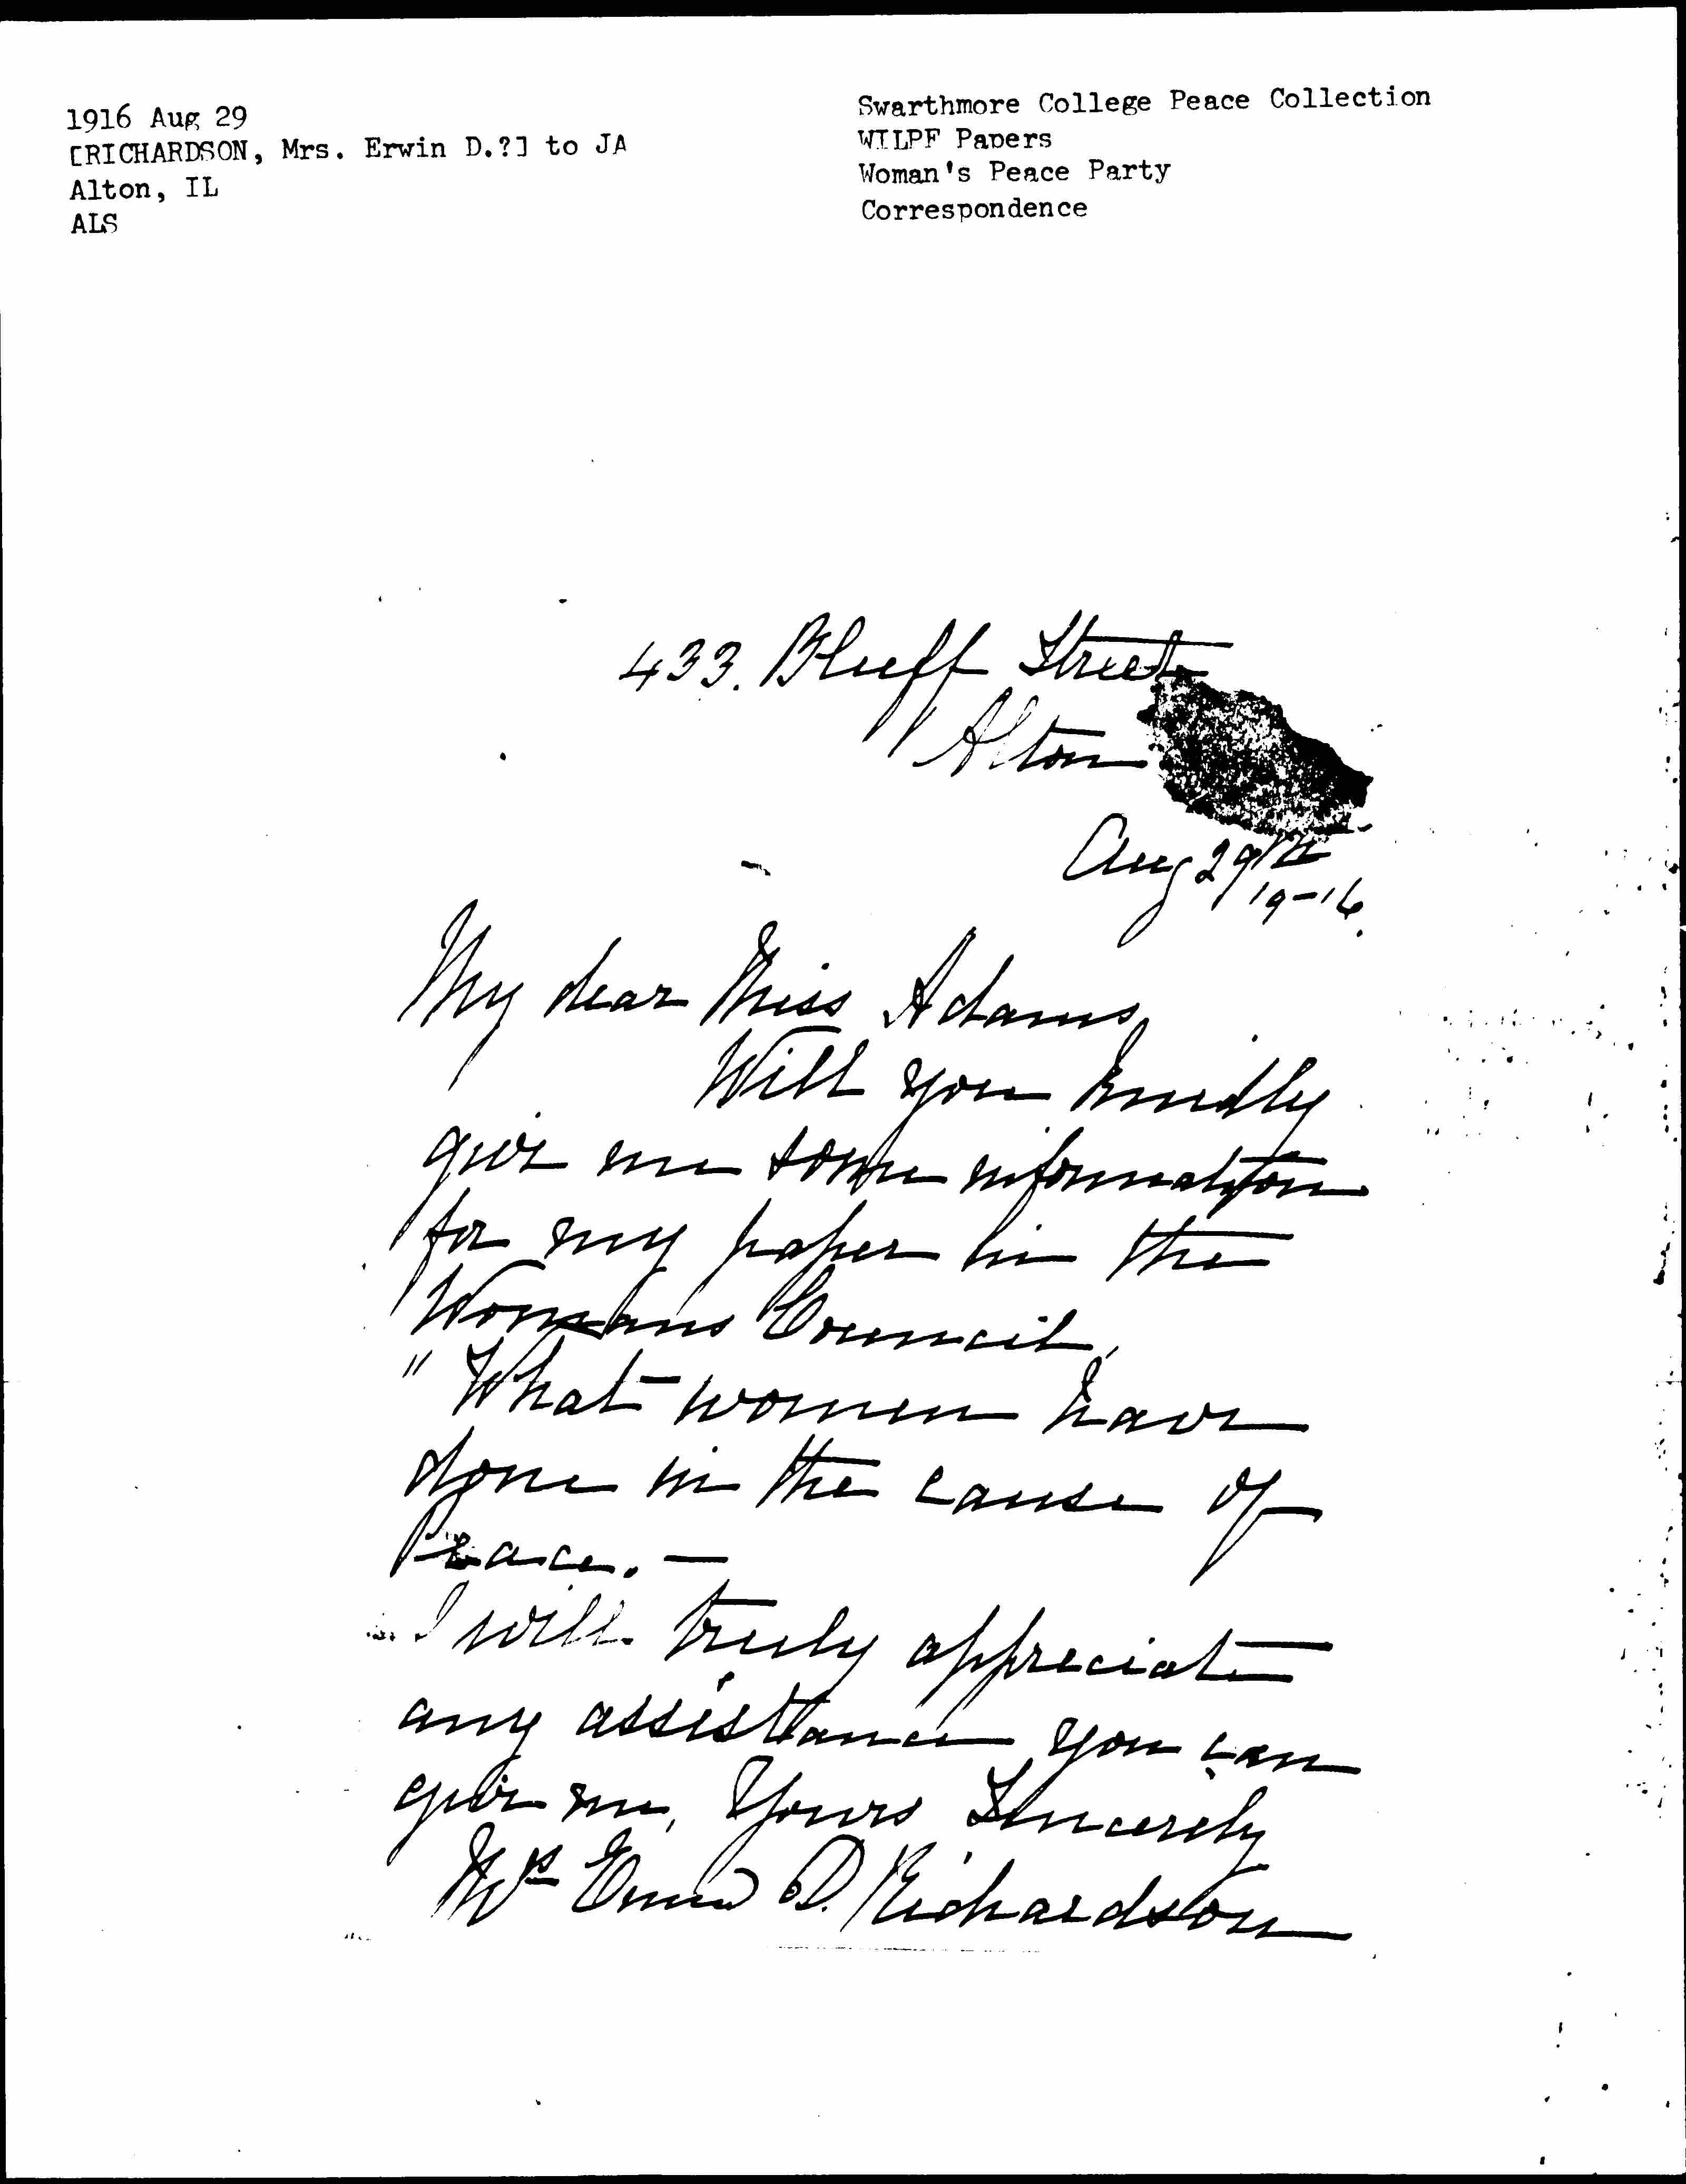 1916 Aug 29
[RICHARDSON, Mrs. Erwin D.?] to JA
Alton, IL
ALS
Swarthmore College Peace Collection
WILPF Papers
Woman's Peace Party
Correspondence
433. Bluff Street
Alton
Aug 29th
19-16.
My dear Miss Adams,
Will you kindly
give me some information
for my paper in the
Womans Council,
"What women have
done in the cause of
Peace. —
I will truly appreciate
any assistance you can
give me, Yours Sincerely
Mrs D. Richardson